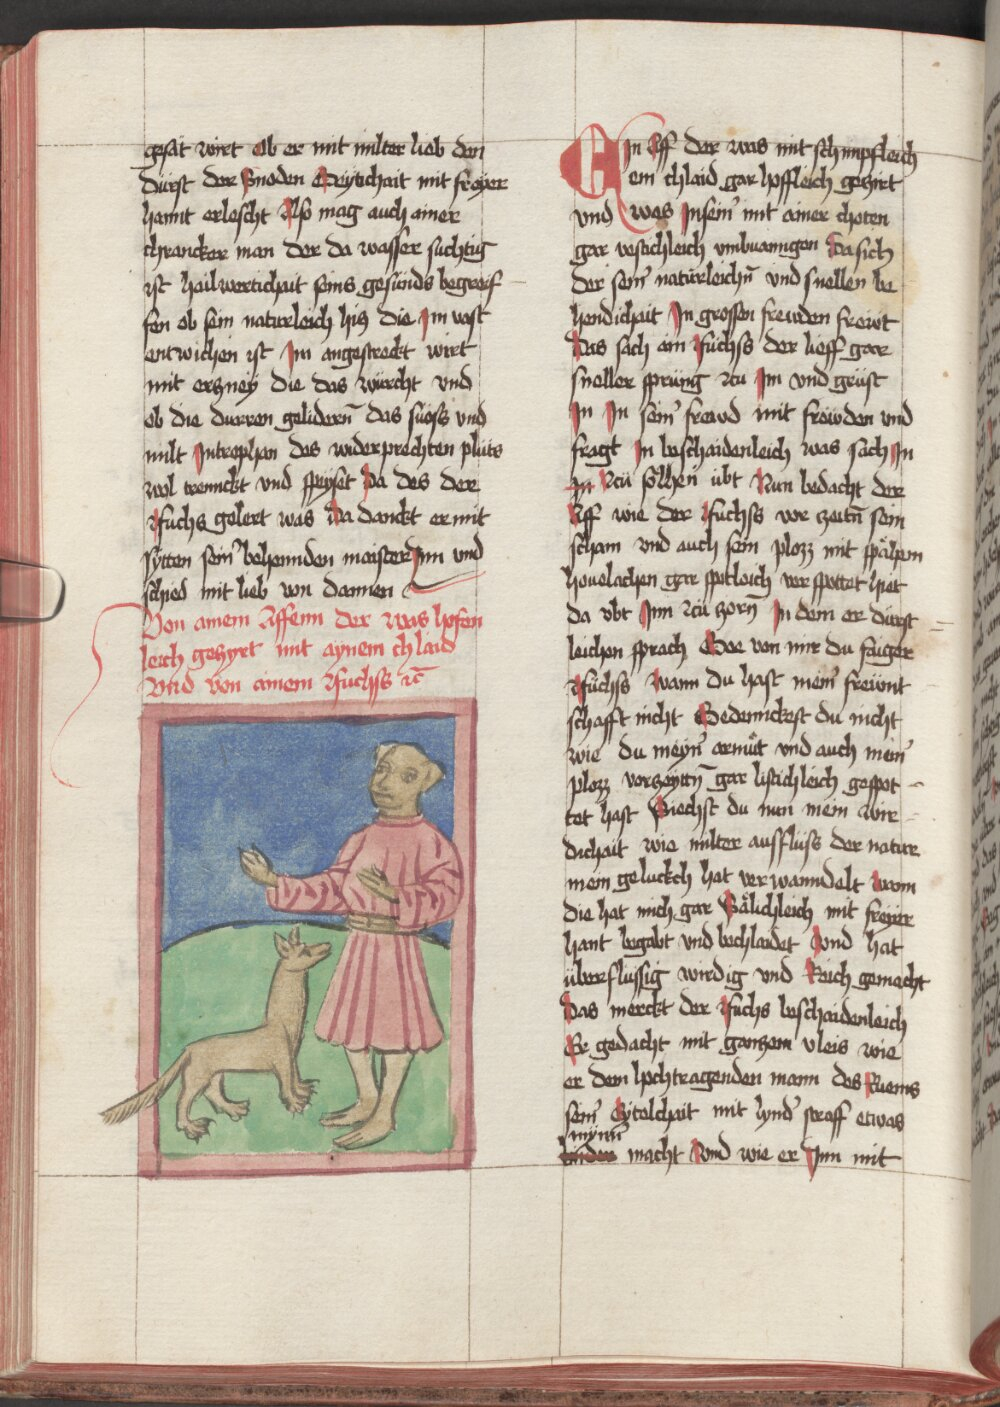 gesät wirt Ob er mit milter lieb den
durst der Snoden Geytichait mit freyer
hannt erlescht Also mag auch ainer
chrancker man der da wasser suchtig
ist hailwertichait seins gesunds begreif
fen ob sein naturleich hiz die Im vast
entwichen ist Im angestreckt wirt
mit erzney die das würcht und
ob die durren gelidern̄ das suess und
milt Introphan des widerprechten pluts
wol trenckt und speyset Da des der
Fuchs gelert was Da danckt er mit
sytten sein̄ behennden maister Inn und
schied mit lieb von dannen
Von ainem Affenn der was hofen
leich gezyrt mit aynem chlaid
Vnd von ainem Fuchss ꝛc̄
EIn Aff der was mit schimpfleich
em chlaid gar hoffleich geziert
vnd was In sein̄ mit ainer choten
gar vestichleich vmbuanngen Da sich
der sein̄ naturleichn̄ vnd snellen be
hendichait In grossen freuden frewt
Das sach ain Fuchss der lieff gar
sneller sprüng zu Im vnd grüst
In In sein̄ frewd mit frewden vnd
fragt In beschaidenleich was sach In
In zu sölhen̄ übt Nun bedacht der
Aff wie der Fuchss vor zeitn̄ sein
scham vnd auch sein plozz mit spälpm
houelachen gar spotleich verspottet het
da vbt Inn zu zorn̄ In dem er dürst
leichen sprach Gee von mir du fäiger
Fuchss Wann du hast mein̄ frewnt
schafft nicht Gedennckest du nicht
wie du meyn̄ armüt vnd auch mein̄
plozz vorzeyttn̄ gar listichleich gespot
tet hast Siechst du nun mein wir
dichait wie milter ausfluss der natur
mein geluckch hat verwanndelt Wann
die hat mich gar Sälichleich mit freyer
hant begabt vnd bechlaidet Vnd hat
überflussig wirdig vnd Reich gemacht
Das merckt der Fuchs beschaidenleich
Er gedacht mit ganzem vleis wie
er dem hochtragenden mann des Ruems
sein̄ Eytelchait mit lynd̄ straff etwas
mynn̄
macht Vnd wie er Inn mit